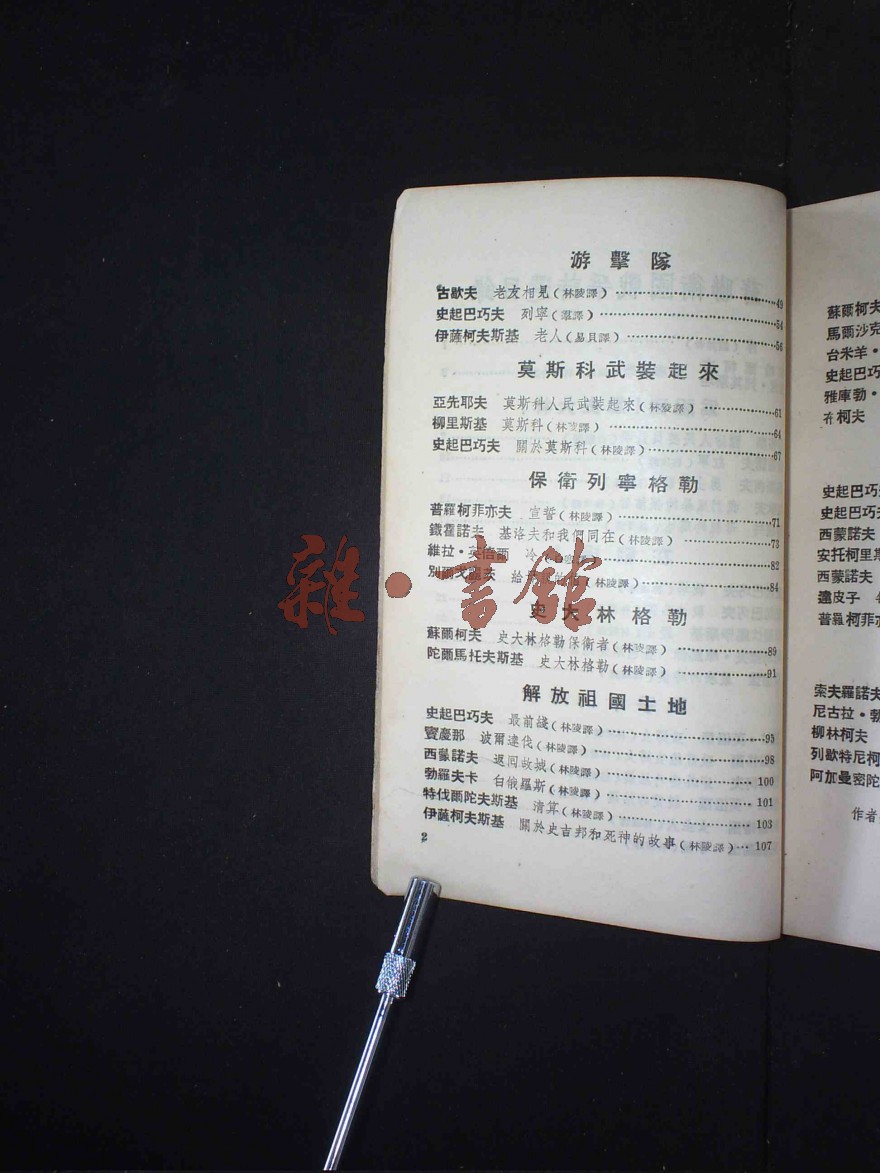 游擊隊
古歇夫 老友相見(林陵譯)……49
史起巴巧夫 列寧(羣譯)……54
伊薩柯夫斯基 老人(易貝譯)……56
莫斯科武裝起來
亞先耶夫 莫斯科人民武裝起來(林陵譯)……61
柳里斯基 莫斯科(林陵譯)……64
史起巴巧夫 關於莫斯科(林陵譯)……67
保衛列寧格勒
普羅柯菲亦夫 宣誓(林陵譯)……71
鐵霍諾夫 基洛夫和我們同在(林陵譯)……73
維拉·英倍爾 冷……82
給……譯)……84
史大林格勒
蘇爾柯夫 史大林格勒保衛者(林陵譯)……89
陀爾馬托夫斯基 史大林格勒(林陵譯)……91
解放祖國土地
史起巴巧夫 最前綫(林陵譯)……95
竇慶那 波爾達伐(林陵譯)……98
西蒙諾夫 返回故城(林陵譯)……100
勃羅夫卡 白俄羅斯(林陵譯)……101
特伐爾陀夫斯基 清算(林陵譯)……103
伊薩柯夫斯基 關於史吉邦和死神的故事(林陵譯)…107
2
雜·書館
蘇爾柯夫
馬爾沙克
台米羊·
史起巴巧
雅庫勃·
柯夫
史起巴巧
史起巴巧
西蒙諾夫
安托柯里斯
西蒙諾夫
普羅柯菲亦
索夫羅諾夫
尼古拉·勃
柳林柯夫
列歇特尼柯
阿加曼密陀
作者